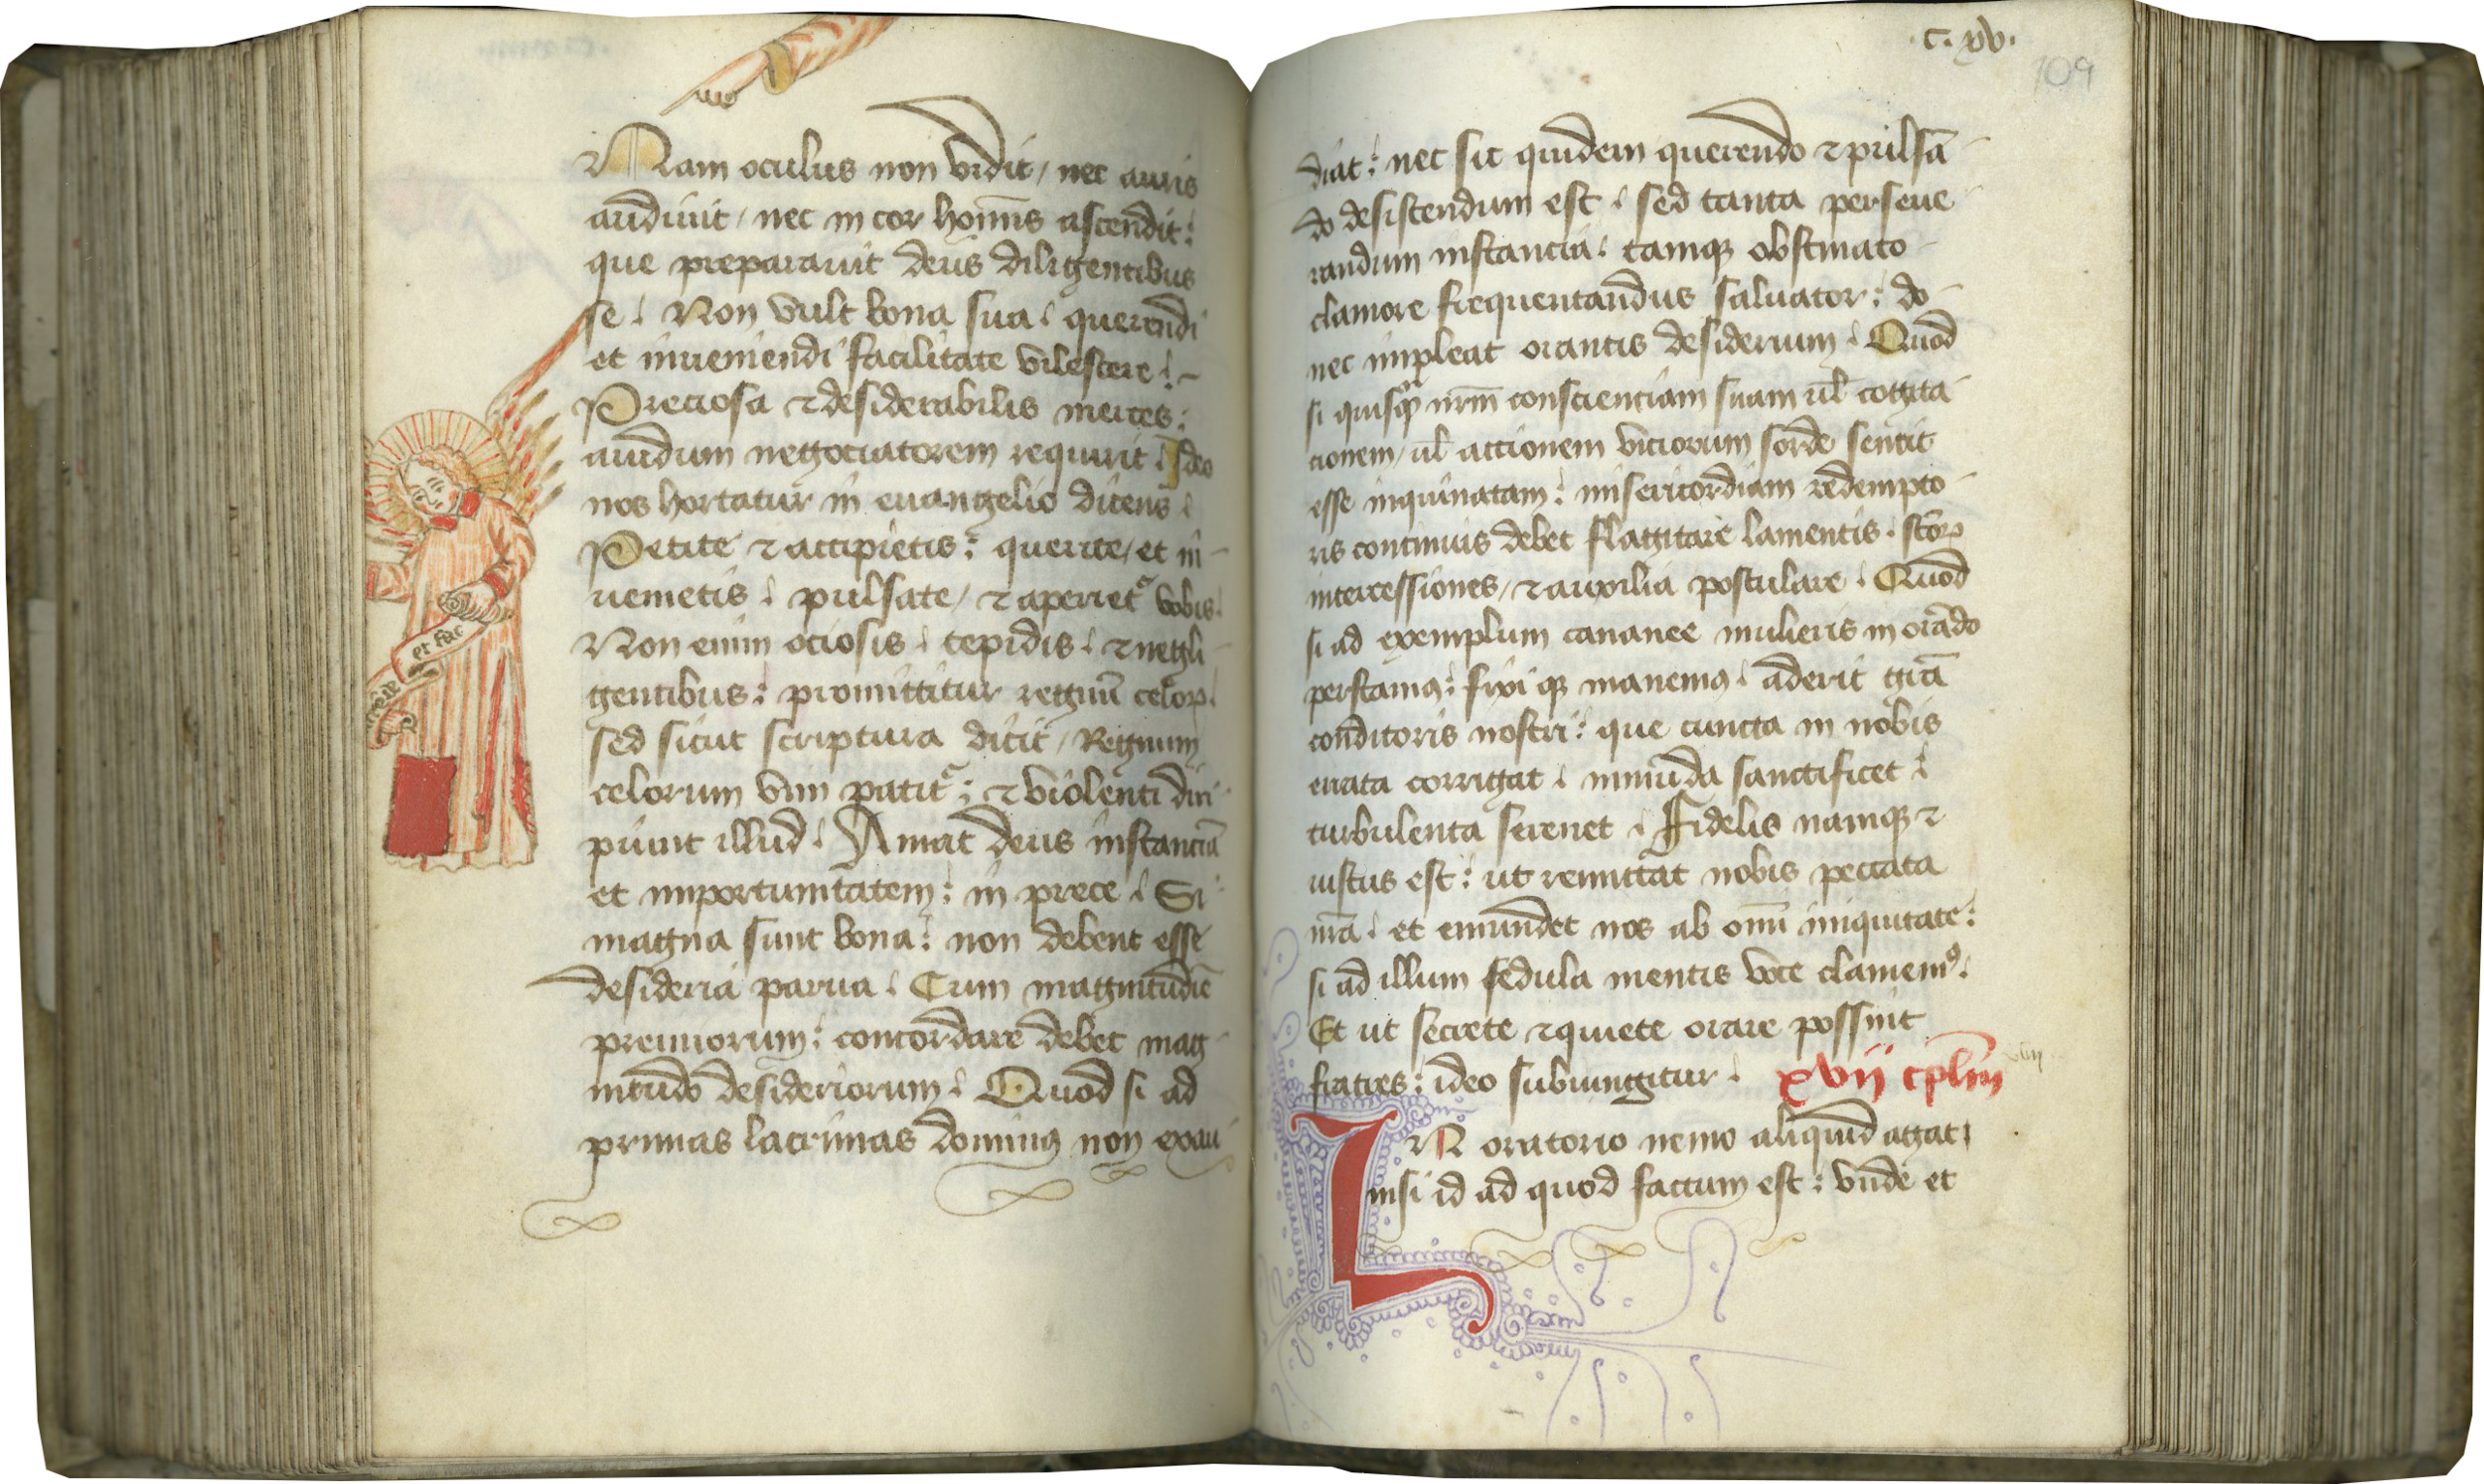 Nam oculus non vidit / nec auris
audiuit / nec in cor homīs ascendit :
que preparauit deus diligentibus
se . Non vult bona sua . querendi
et inueniendi facilitate vilescere . -
Preciosa ⁊ desiderabilis merces :
auidum negociatorem requirit . Ideo
nos hortatur in euangelio dicens .
Petite ⁊ accipietis : querite / et in-
uenietis . pulsate / ⁊ aperiet᷑ vobis .
Non enim ociosis . tepidis . ⁊ negli-
gentibus : promittitur regnū celoꝝ .
sed sicut scriptura dicit / Regnum
celorum vim patit᷑ : ⁊ violenti diri-
piunt illud . Amat deus instanciā
et importunitatem : in prece . Si
magna sunt bona : non debent esse
desideria parua . Cum magnitudīe
premiorum : concordare debet mag-
nitudo desideriorum . Quod si ad
primas lacrimas dominꝰ non exau-
et fac
.c. xv.
109
diat : nec sic quidem querendo ⁊ pulsā-
do desistendum est . sed tanta perseue-
randum instancia . tamqꝫ obstinato
clamore frequentandus saluator : do-
nec impleat orantis desiderium . Quod
si quisqꝫ nr̄m conscienciam suam ul̄ cogita-
cionem / ul̄ actionem viciorum sorde sentit
esse inquinatam : misericordiam redempto-
ris continuis debet flagitare lamentis . sc̄orꝝ
intercessiones / ⁊ auxilia postulare . Quod
si ad exemplum cananee mulieris in orādo
perstamꝰ : fixi qꝫ manemꝰ . aderit grā
conditoris nostri : que cuncta in nobis
errata corrigat . inmūda sanctificet .
turbulenta serenet . Fidelis namqꝫ ⁊
iustus est : ut remittat nobis peccata
nr̄a . et emundet nos ab om̄i iniquitate :
si ad illum sedula mentis voce clamemꝰ .
Et ut secrete ⁊ quiete orare possint
fratres : ideo subiungitur . xvij cpl̄m
IN oratorio nemo aliquid agat ;
nisi id ad quod factum est : vnde et